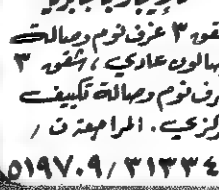 شقق ٣ غرف نوم وصالة
صالون عادي، شقق ٣
غرف نوم وصالة تكييف
مركزي. المراجعة ت /
٥١٩٧٠٩ / ٣١٣٣٤